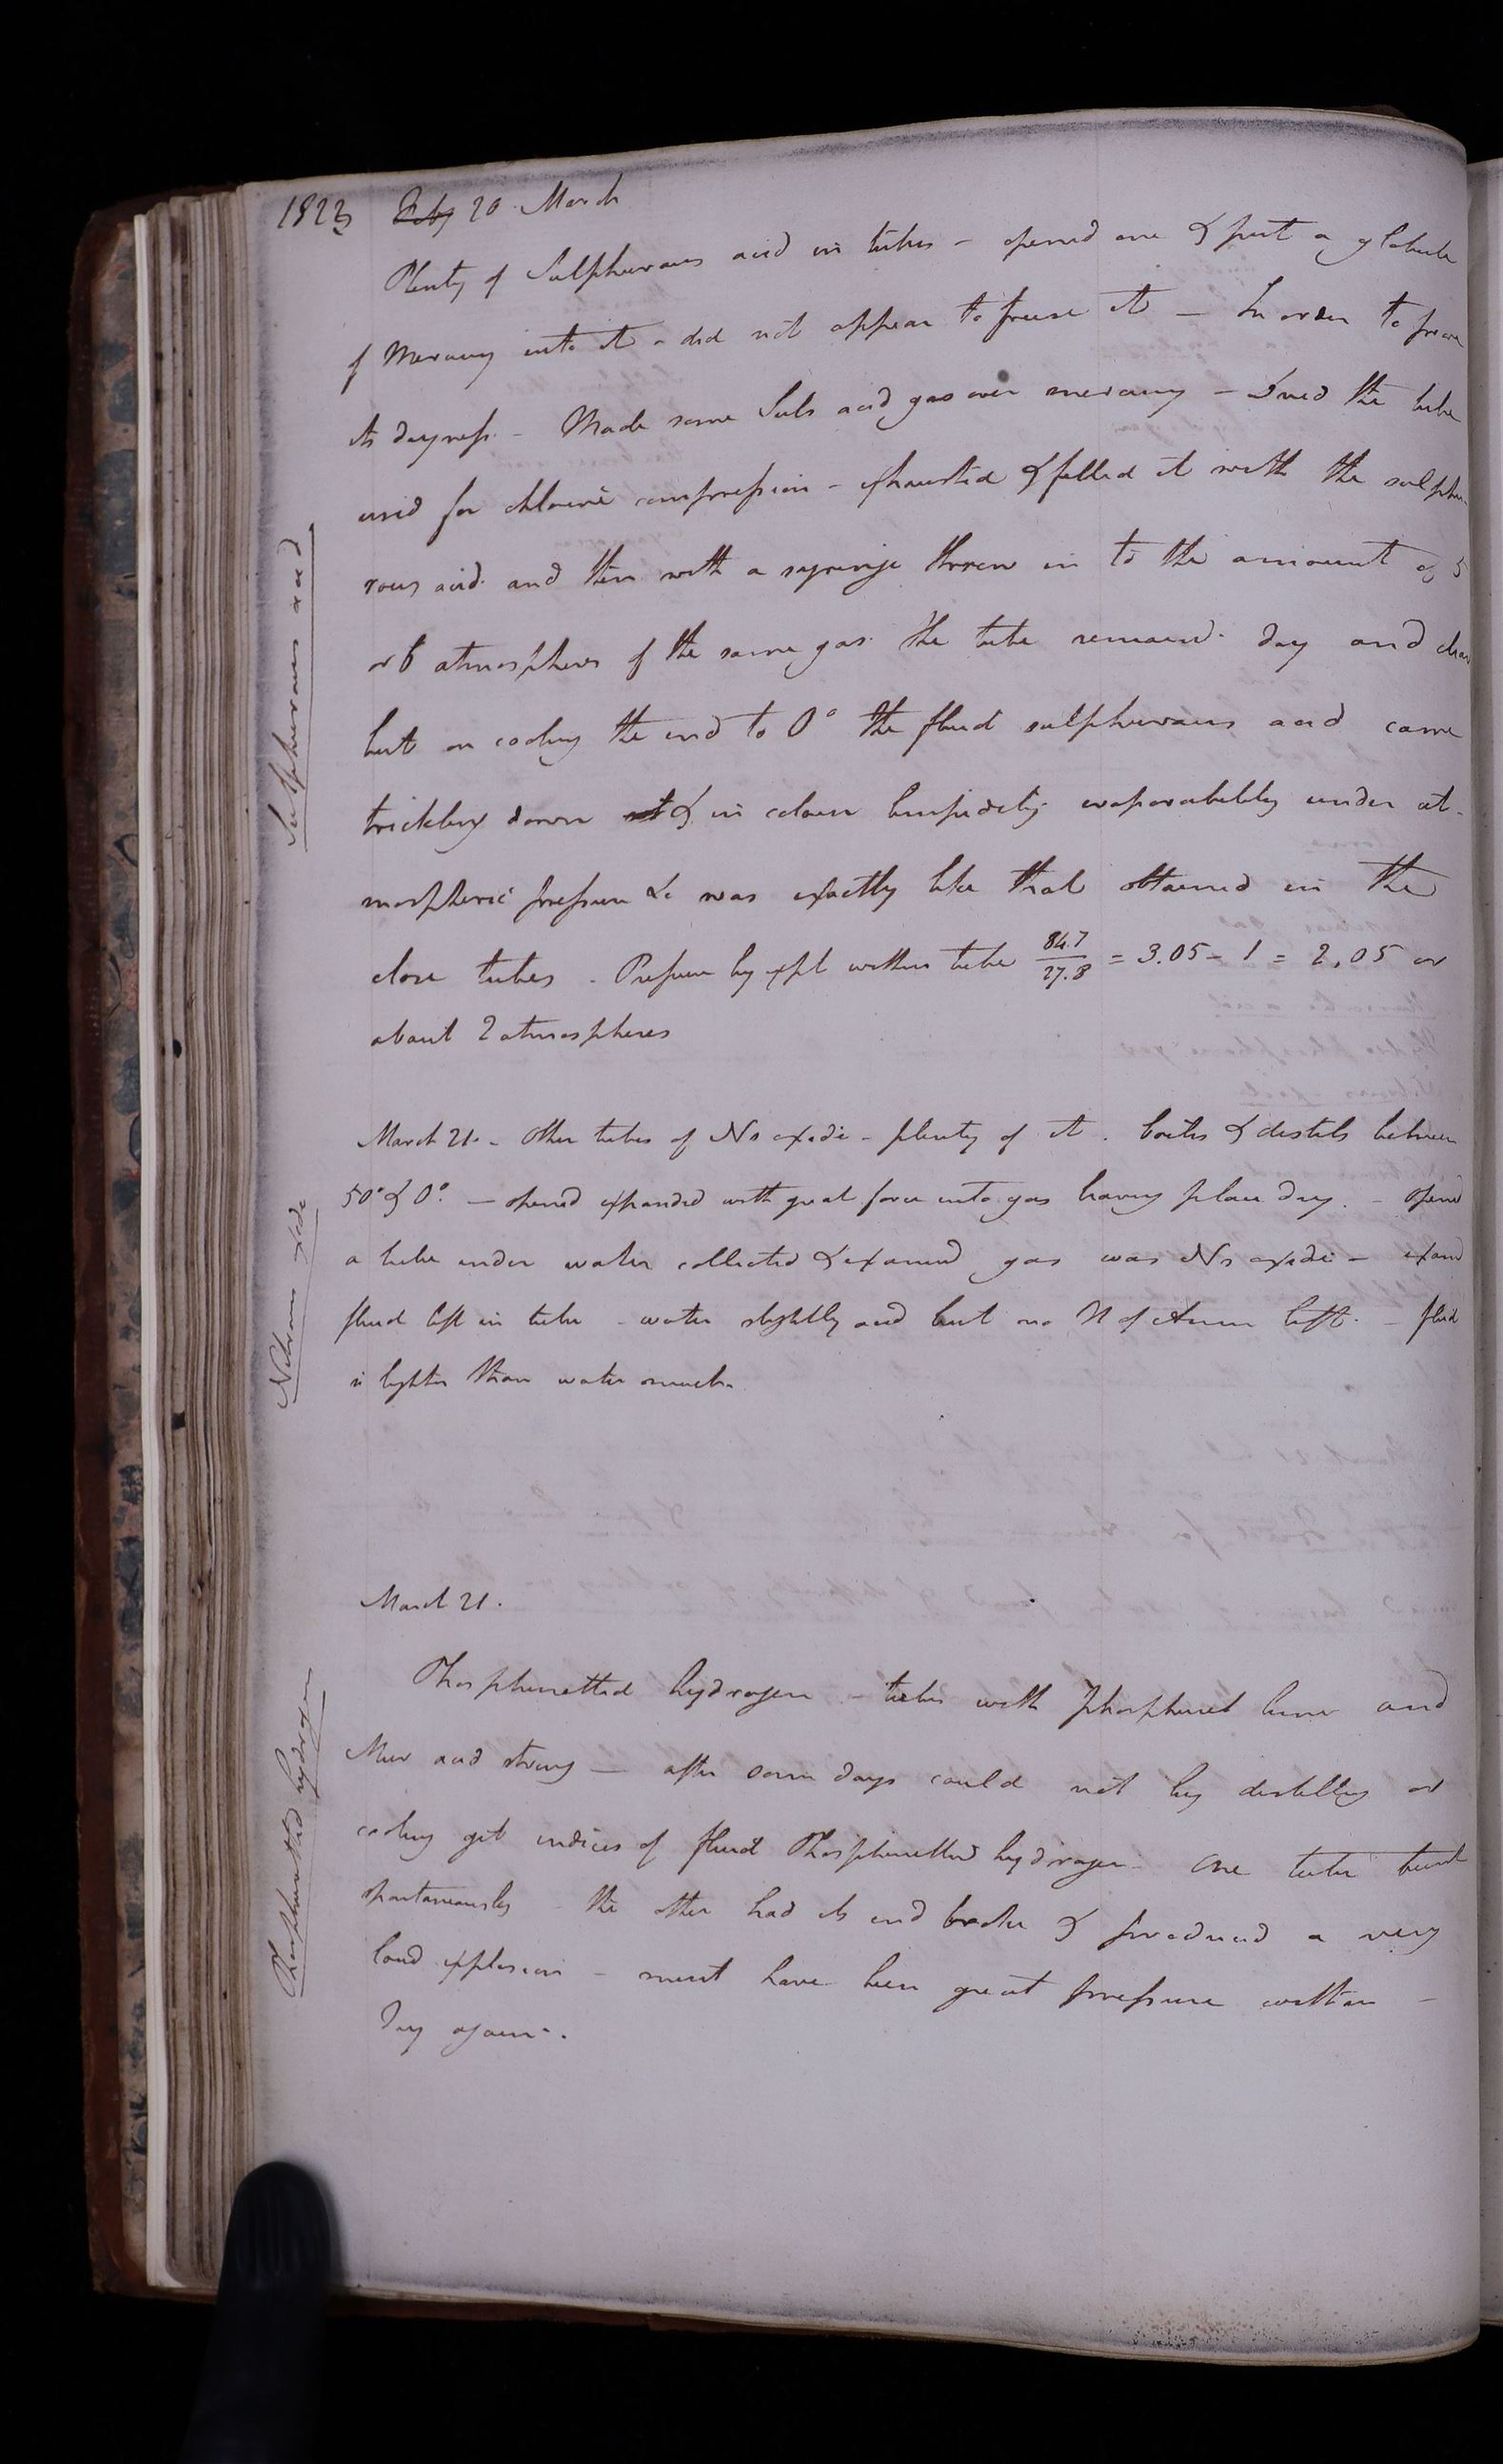 1823 Feby 20 March
Plenty of Sulphurous acid in tubes - opened one & put a globule
of Mercury into it - did not appear to freeze it - In order to prove
its dryness - Made some Sul acid gas over mercury - Dried the tube
used for chlorine compression - exhausted & filled it with the sulphu-
rous acid and then with a syringe threw in to the amount of 5
or 6 atmospheres of the same gas. The tube remained dry and clear
but on cooling the end to 0° the fluid sulphurous acid came
trickling down & in colour limpidity evaporability under at-
mospheric pressure &c was exactly like that obtained in the
close tubes. Pressure by expt within tube 84.7/27.8 = 3.05 - 1 = 2,05 or
about 2 atmospheres
Sulphurous acid
March 21. - Other tubes of Ns oxide - plenty of it. boils & distils between
50° & 0°. - opened expanded with great force into gas leaving place dry. - opened
a tube under water collected & examined gas was Ns oxide - examd
fluid left in tube - water slightly acid but no N of Amm left. - fluid
is lighter than water much.
Nitrous oxide
March 21.
Phosphuretted hydrogen - tubes with phosphuret lime and
Mur acid strong - after some days could not by distilling or
cooling get indices of fluid Phosphuretted hydrogen - One tube burst
spontaneously - the other had its end broke & produced a very
loud explosion - must have been great pressure within -
Try again.
Phosphuretted hydrogen